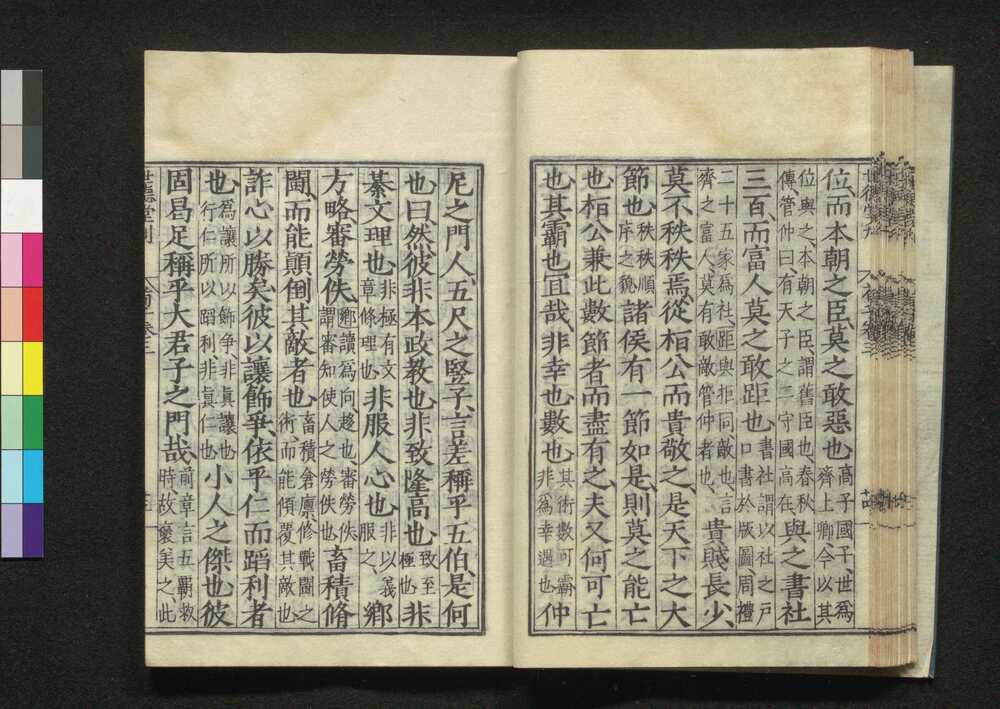 位而本朝之臣莫之敢惡也高子國子世爲齊上卿今以其
位與之本朝之臣謂舊臣也春秋傳管仲曰有天子之二守國高在與之書社
三百而富人莫之敢距也書社謂以社之戸口書於版圖周禮
二十五家爲社距與拒同敵也言齊之富人莫有敢敵管仲者也貴賤長少
莫不秩秩焉從桓公而貴敬之是天下之大
節也秩秩順序之貌諸侯有一節如是則莫之能亡
也桓公兼此數節者而盡有之夫又何可亡
也其霸也宜哉非幸也數也其術數可霸非爲幸遇也仲
尼之門人五尺之豎子言差稱乎五伯是何
也曰然彼非本政教也非致隆高也致至極也非
綦文理也非極有文章條理也非服人心也非以義服之鄉
方略審勞佚鄉讀爲向趨也審勞佚謂審知使人之勞佚也畜積脩
鬭而能顛倒其敵者也畜積倉廩脩戰鬭之術而能傾覆其敵也
詐心以勝矣彼以讓飾爭依乎仁而蹈利者
也爲讓所以飾爭非眞讓也行仁所以蹈利非眞仁也小人之傑也彼
固曷足稱乎大君子之門哉前章言五霸救時故襃美之此